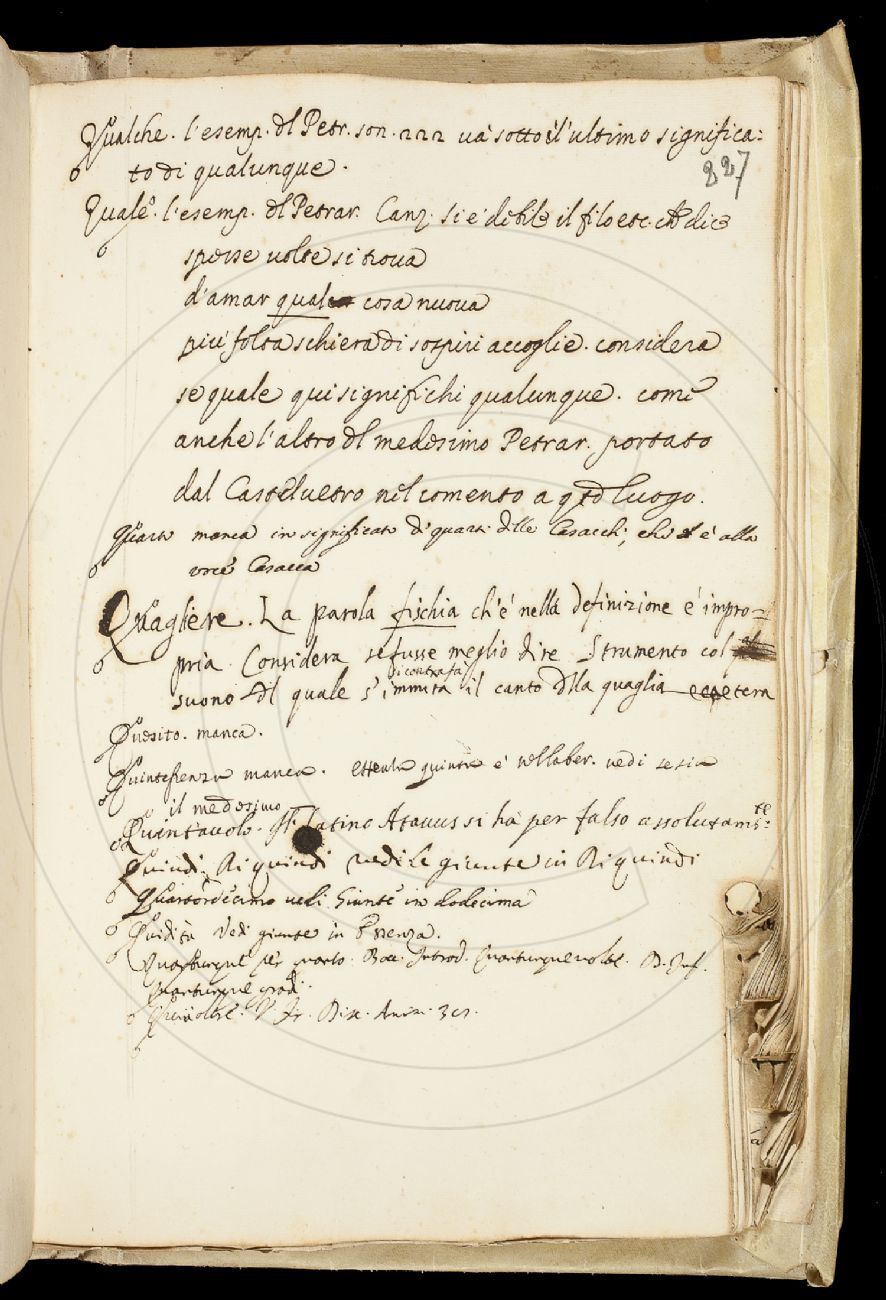 Qualche. l'esemp. dl Petr. son. 222 uà sotto il'ultimo significa:
227
to di qualunque.
Quale. l'esemp. dl Petrar. Canz. Si è debile il filo etc. che dice
spesse uolte si troua
d'amar quale cosa nuoua
più folta schiera di sospiri accoglie. considera
se quale qui significhi qualunque. come
anche l'altro dl medesimo Petrar. portato
dal Casteluetro nel comento a qto luogo.
Quarto manca in significato di quarti dlle Casacche, che è alla
uoce Casacca
Quagliere. La parola fischia ch'è nella definizione è impro-
pria. Considera se fusse meglio dire Strumento col
di contrafà
suono dl quale s'immita il canto dlla quaglia eccetera
Quesito. manca.
Quintessenza manca. essentia quinta è nellaber. uedi se sia
il medesimo
Quintauolo. Latino Atauus si hà per falso assolutamte.
Quindi. Di quindi uedi le giunte in Di quindi
Quartodecimo uedi Giunte in dodecima
Quidità Vedi giunte in Essenza.
Introd. D. Inf.